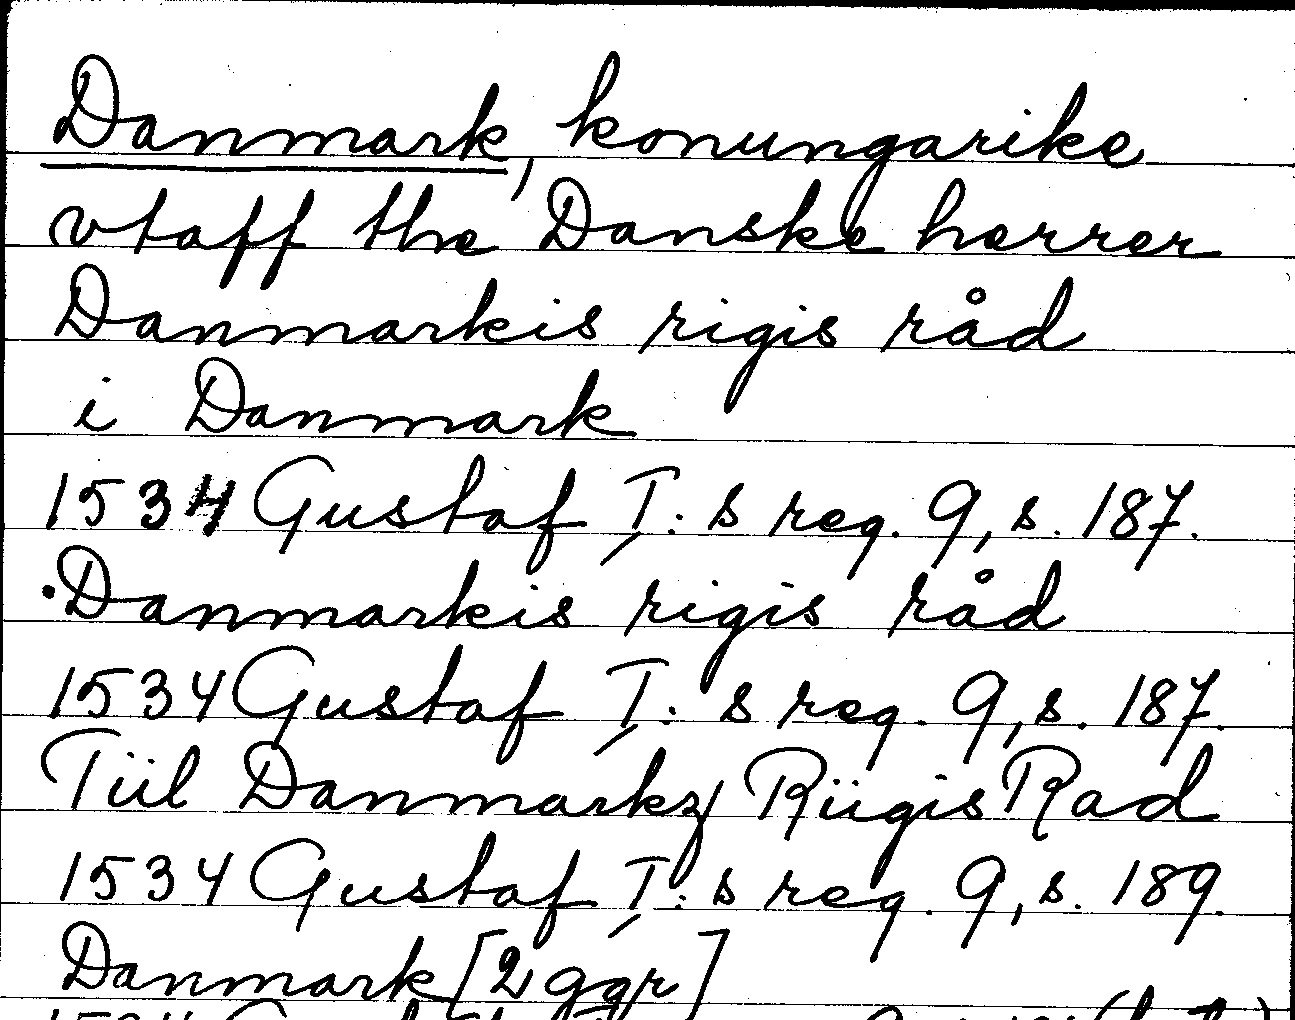 Danmark, konungarike
vtaff the Danske herrer
Danmarkis rigis råd
i Danmark
1534 Gustaf I:s reg. 9, s. 187.
Danmarkis rigis råd
1534 Gustaf I:s reg. 9, s. 187.
Tiil Danmarkz Riigis Rad
1534 Gustaf I:s reg. 9, s. 189.
Danmark [2 ggr]